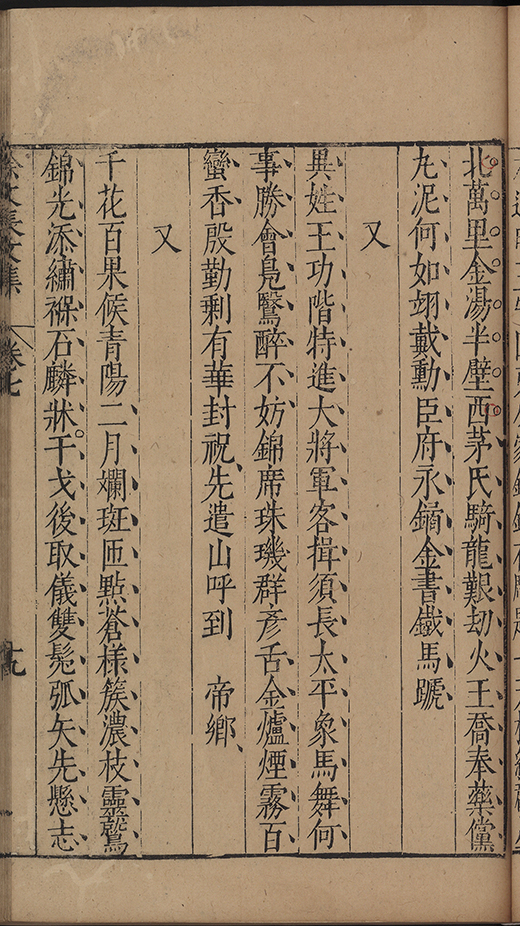 北萬里金湯半壁西茅氏騎龍艱劫火王喬奉藥儻
九泥何如翊戴勳臣府永鎻金書鐵馬蹏
又
異姓王功階特進大將軍客揖須長太平象馬舞何
事勝會鳬鷖醉不妨錦席珠璣群彦舌金爐煙霧百
蠻香殷勤剩有華封祝先遣山呼到 帝鄉
又
千花百果候青陽二月斕斑匝㸃蒼様簇濃枝靈鵞
錦光添繡褓石麟牀干戈後取儀雙髢弧矢先懸志
徐文長文集 卷七 十九